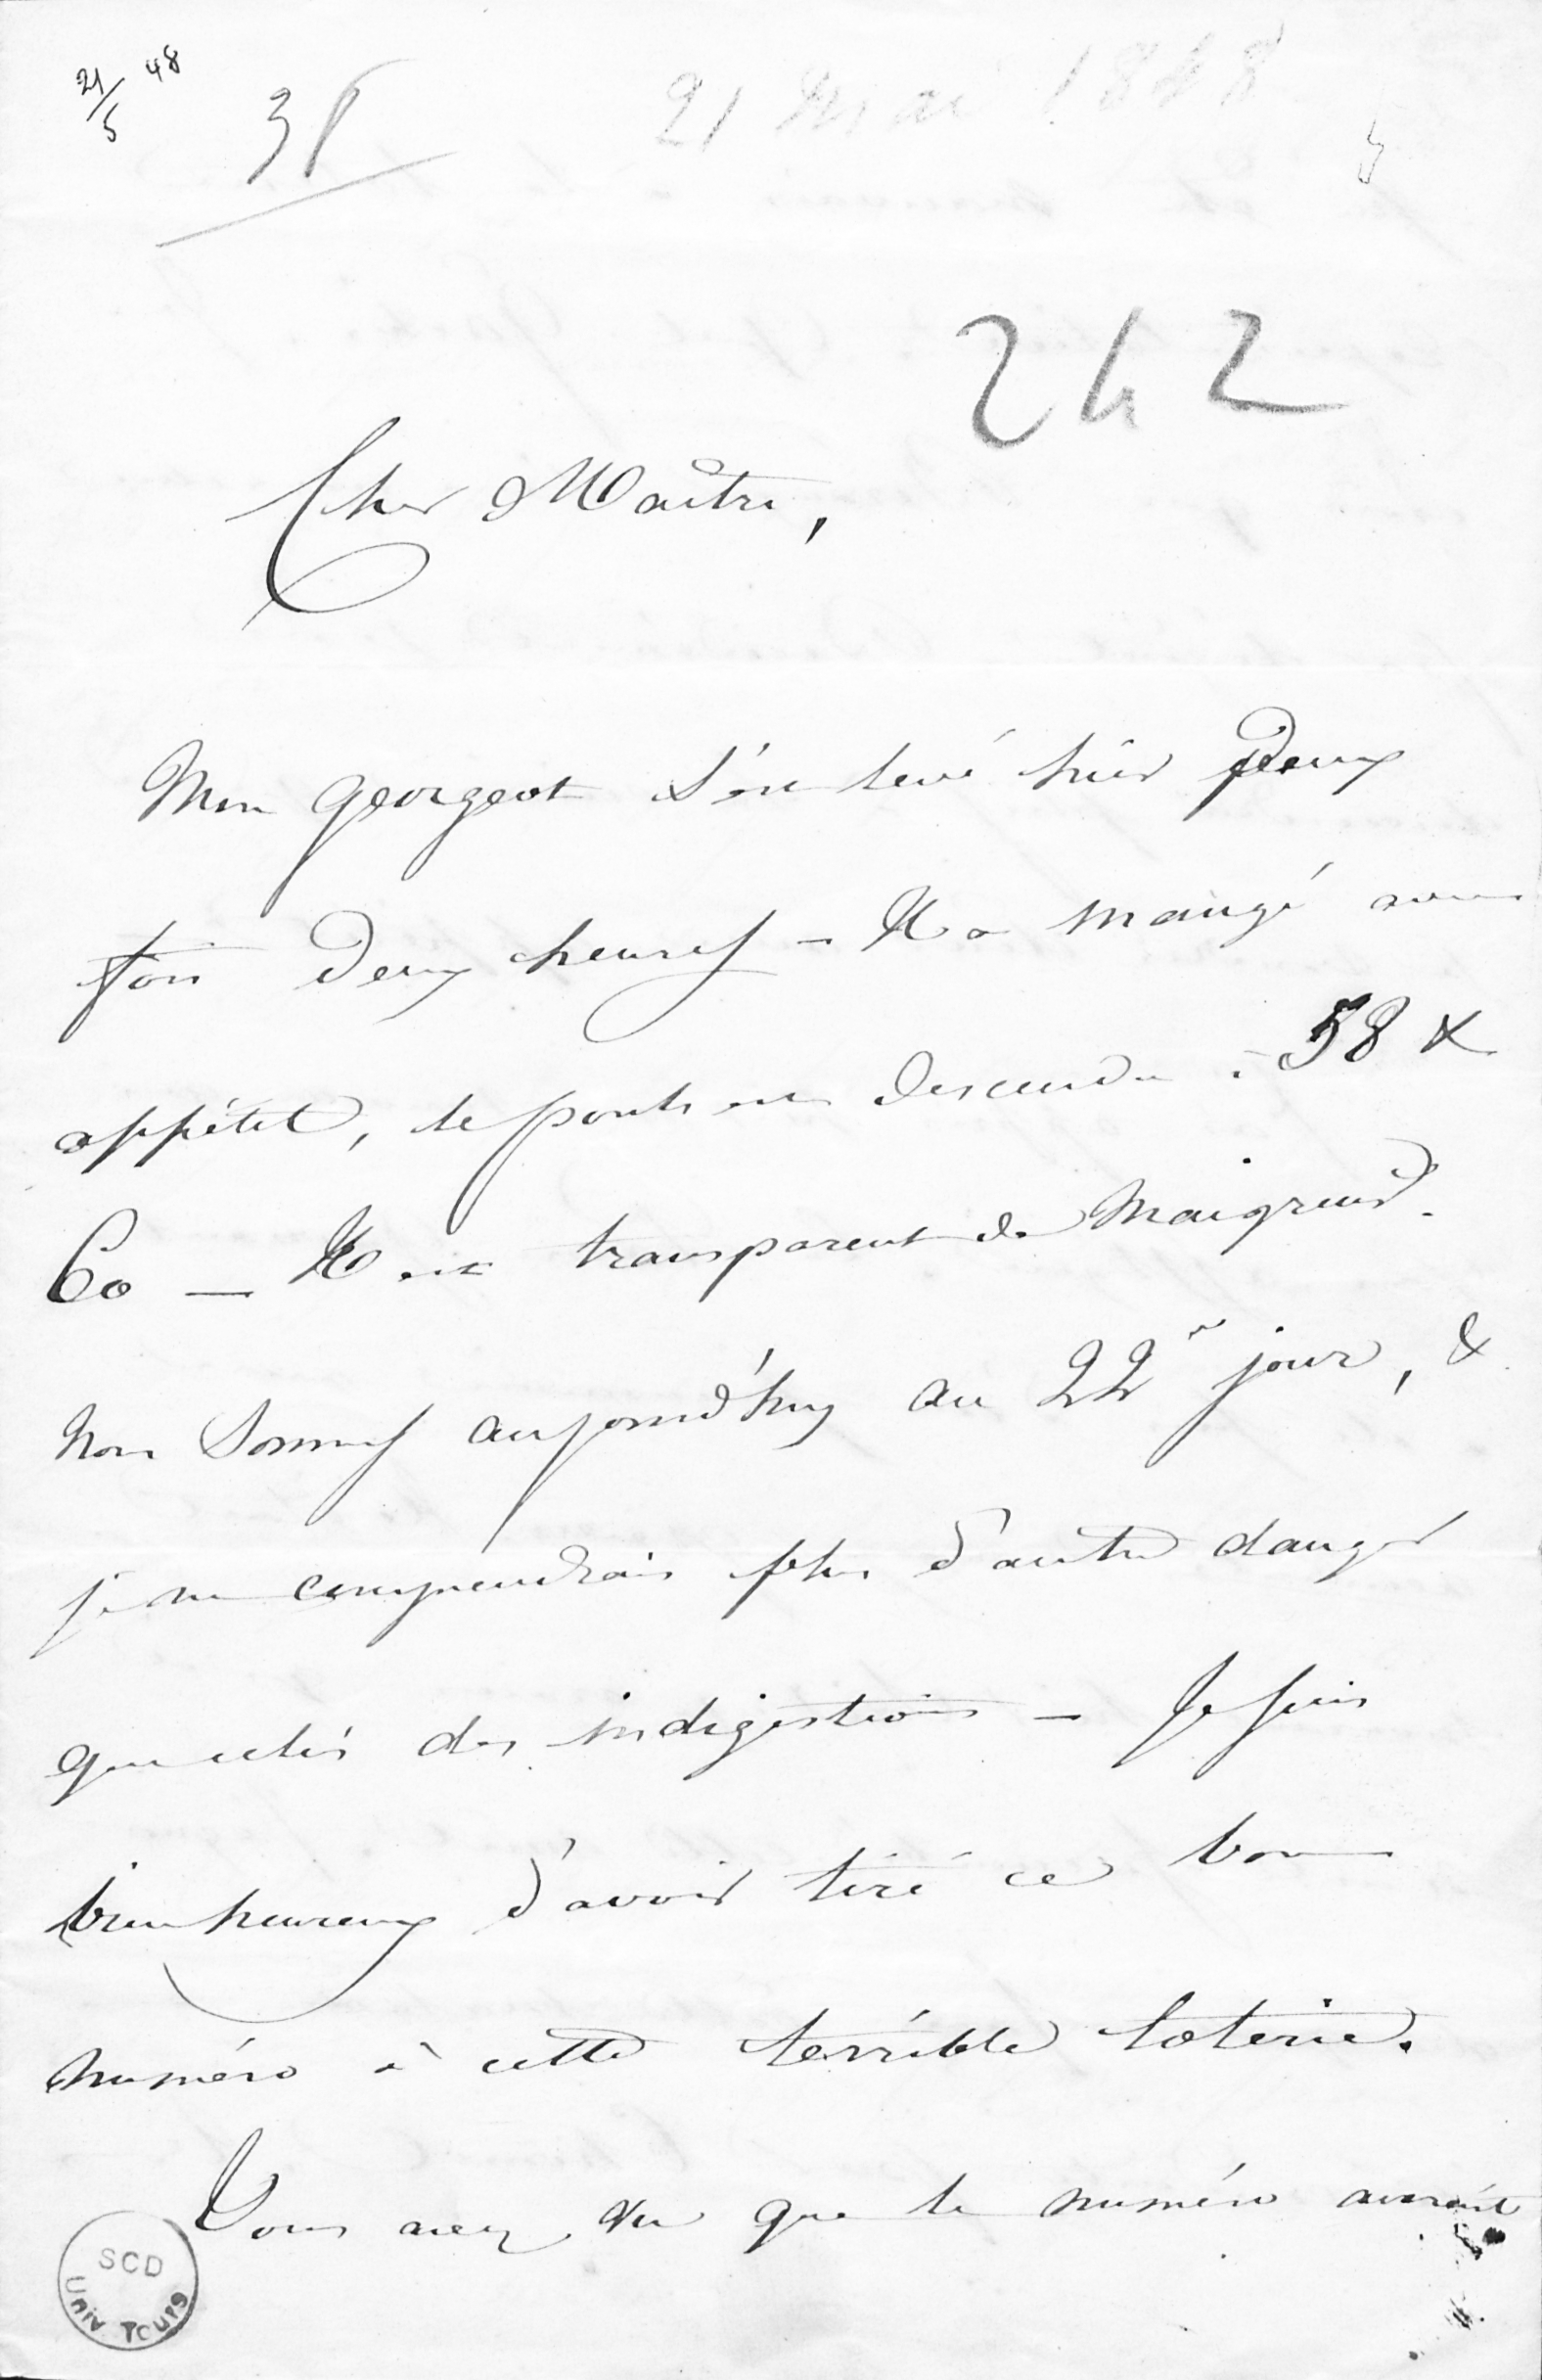 21/5 48
38
21 Mai 1848
242
Cher Maître,
Mon georgeot s'est levé hier Deux
fois Deux heures – Il a mangé avec
appétit, le pouls est descendu à 58 &
60 — Il est transparent de maigreur.
Nous sommes aujourd'huy au 22e jour, &
je ne comprendrais plus d'autre danger
que celui des indigestions – Je suis
bien heureux d'avoir tiré ce bon
numéro à cette terrible loterie.
Vous avez vu que le numéro
SCD
Univ Tours